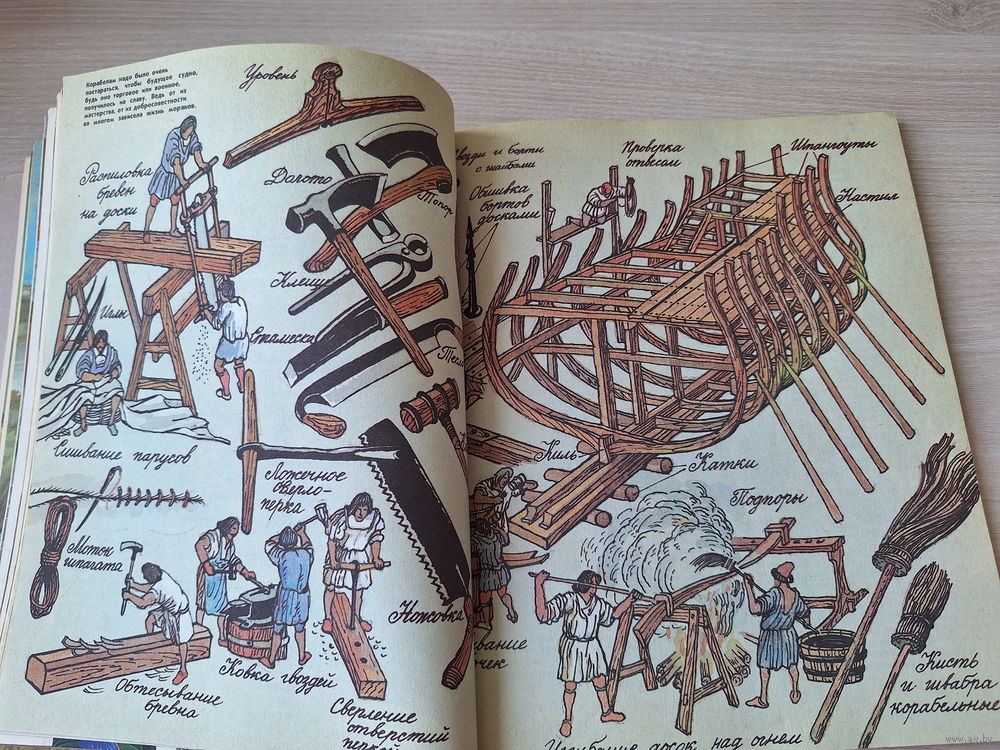 Корабелам надо было очень
постараться, чтобы будущее судно,
будь оно торговое или военное,
получилось на славу. Ведь от их
мастерства, от их добросовестности
во многом зависела жизнь моряков.
Уровень
Распиловка
бревен
на доски
Долото
Топор
Клещи
Иглы
Стамеска
Сшивание парусов
Ложечное
сверло-
перка
Моток
шпагата
Ножовка
Ковка гвоздей
Обтесывание
бревна
Сверление
отверстий
перкой
и болты
с шайбами
Проверка
отвесом
Шпангоуты
Обшивка
бортов
досками
Настил
Киль
Катки
Подпоры
досок над огнем
Кисть
и швабра
корабельные
www.av.by